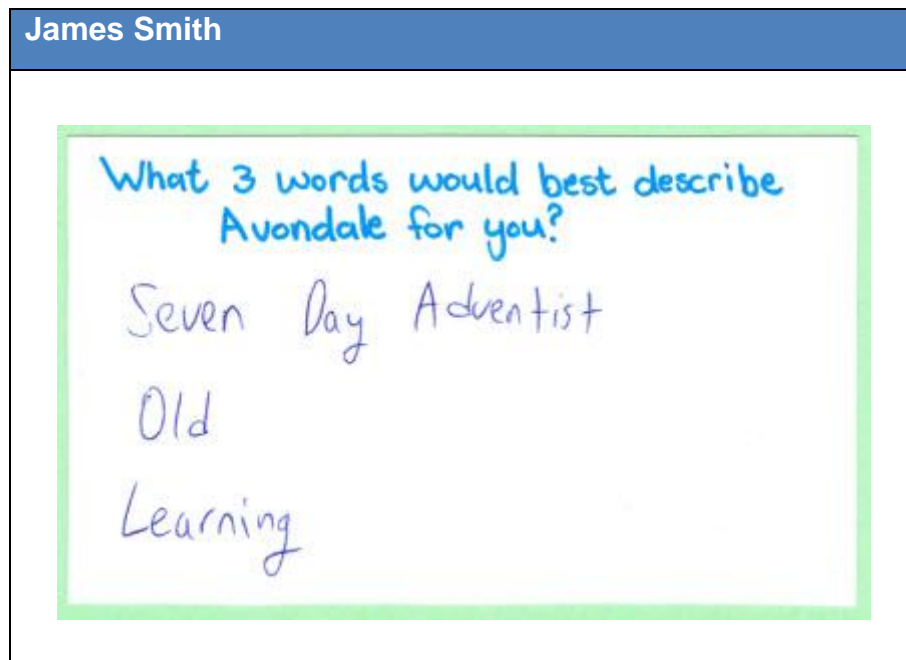 James Smith
What 3 words would best describe
Avondale for you?
Seven Day Adventist
Old
Learning